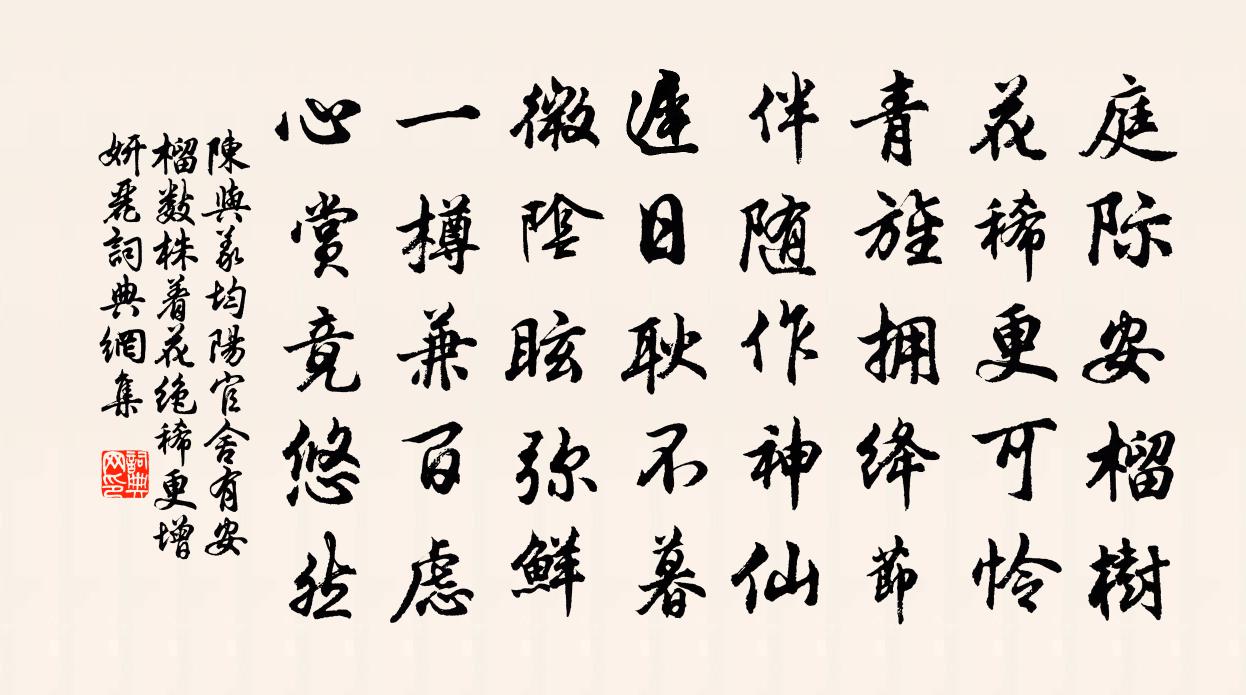 庭际安榴樹
花稀更可怜
青旌拥绛節
伴随作神仙
遲日耿不暮
微陰眩弥鲜
一樽兼百慮
心赏竟悠然
陳與義均陽官舍有安
榴数株着花绝稀更增
妍麗詞典網集
詞典网印